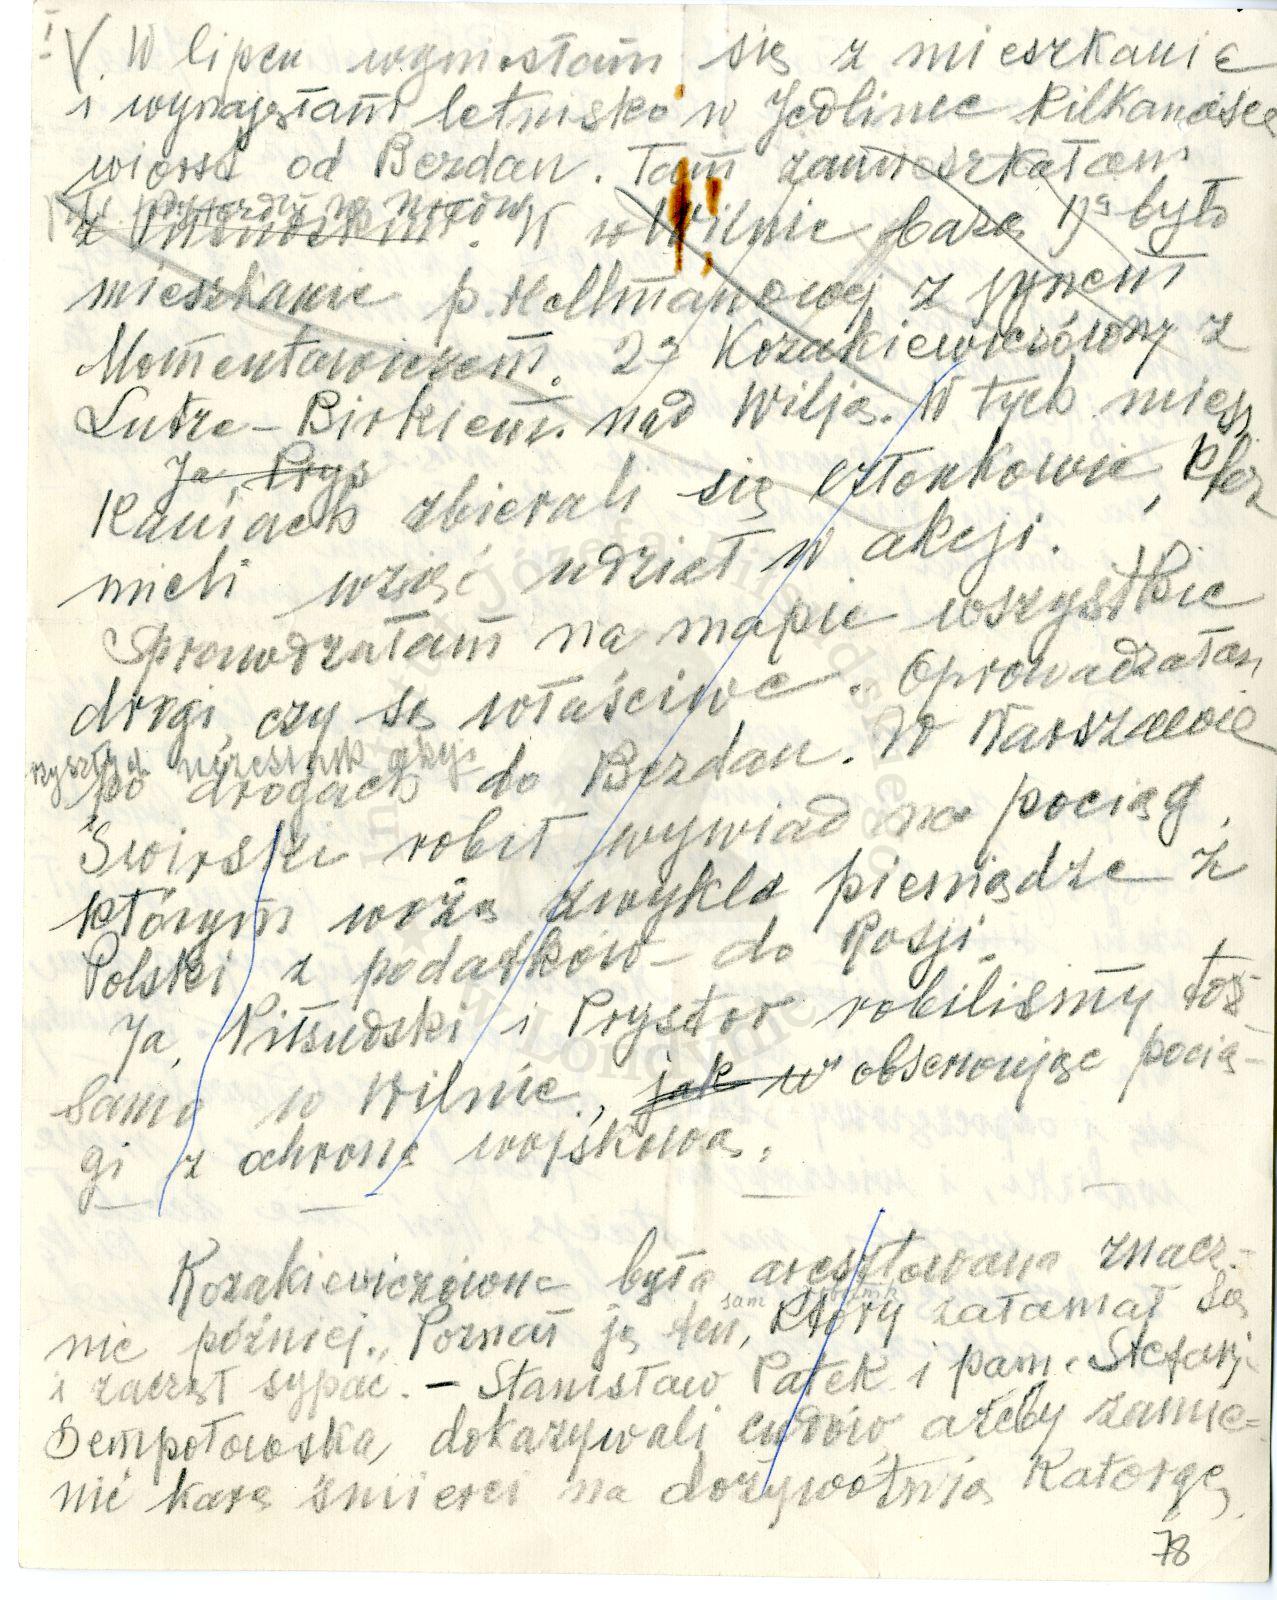 V. W lipcu wyniosłam się z mieszkania
i wynajęłam letnisko w Jedlince kilkanaście
wiorst od Bezdan. Tam zamieszkałam
z Piłsudskim. W Wilnie bazą 1ą było
mieszkanie p. Hellmanowej z synem
Momentowiczem. 2ą Kozakiewiczówny z
Lutze-Birkiem nad Wilją. W tych miesz
Ja, Prys
kaniach zbierali się członkowie, którz
mieli wziąść udział w akcji.
Sprawdzałam na mapie wszystkie
drogi, czy są właściwe. Oprowadzałam
uczestnik akcji
po drogach do Bezdan. W Warszawie
Świrski robił wywiad na pociąg,
którym wożą zwykle pieniądze z
Polski z podatków – do Rosji.
Ja, Piłsudski i Prystor robiliśmy toż
samo w Wilnie, jak w obserwując pocią-
gi z ochroną wojskową.
Kozakiewiczówna była aresztowana znacz-
nie później. Poznał ją ten, który załamał się
sam
i zaczął sypać. – Stanisław Patek i pani Stefanj
Sempołowska, dokazywali cudów, ażeby zamie=
nić karę śmierci na dożywotnią katorgę.
78
Instytut Józefa Piłsudskiego w Londynie